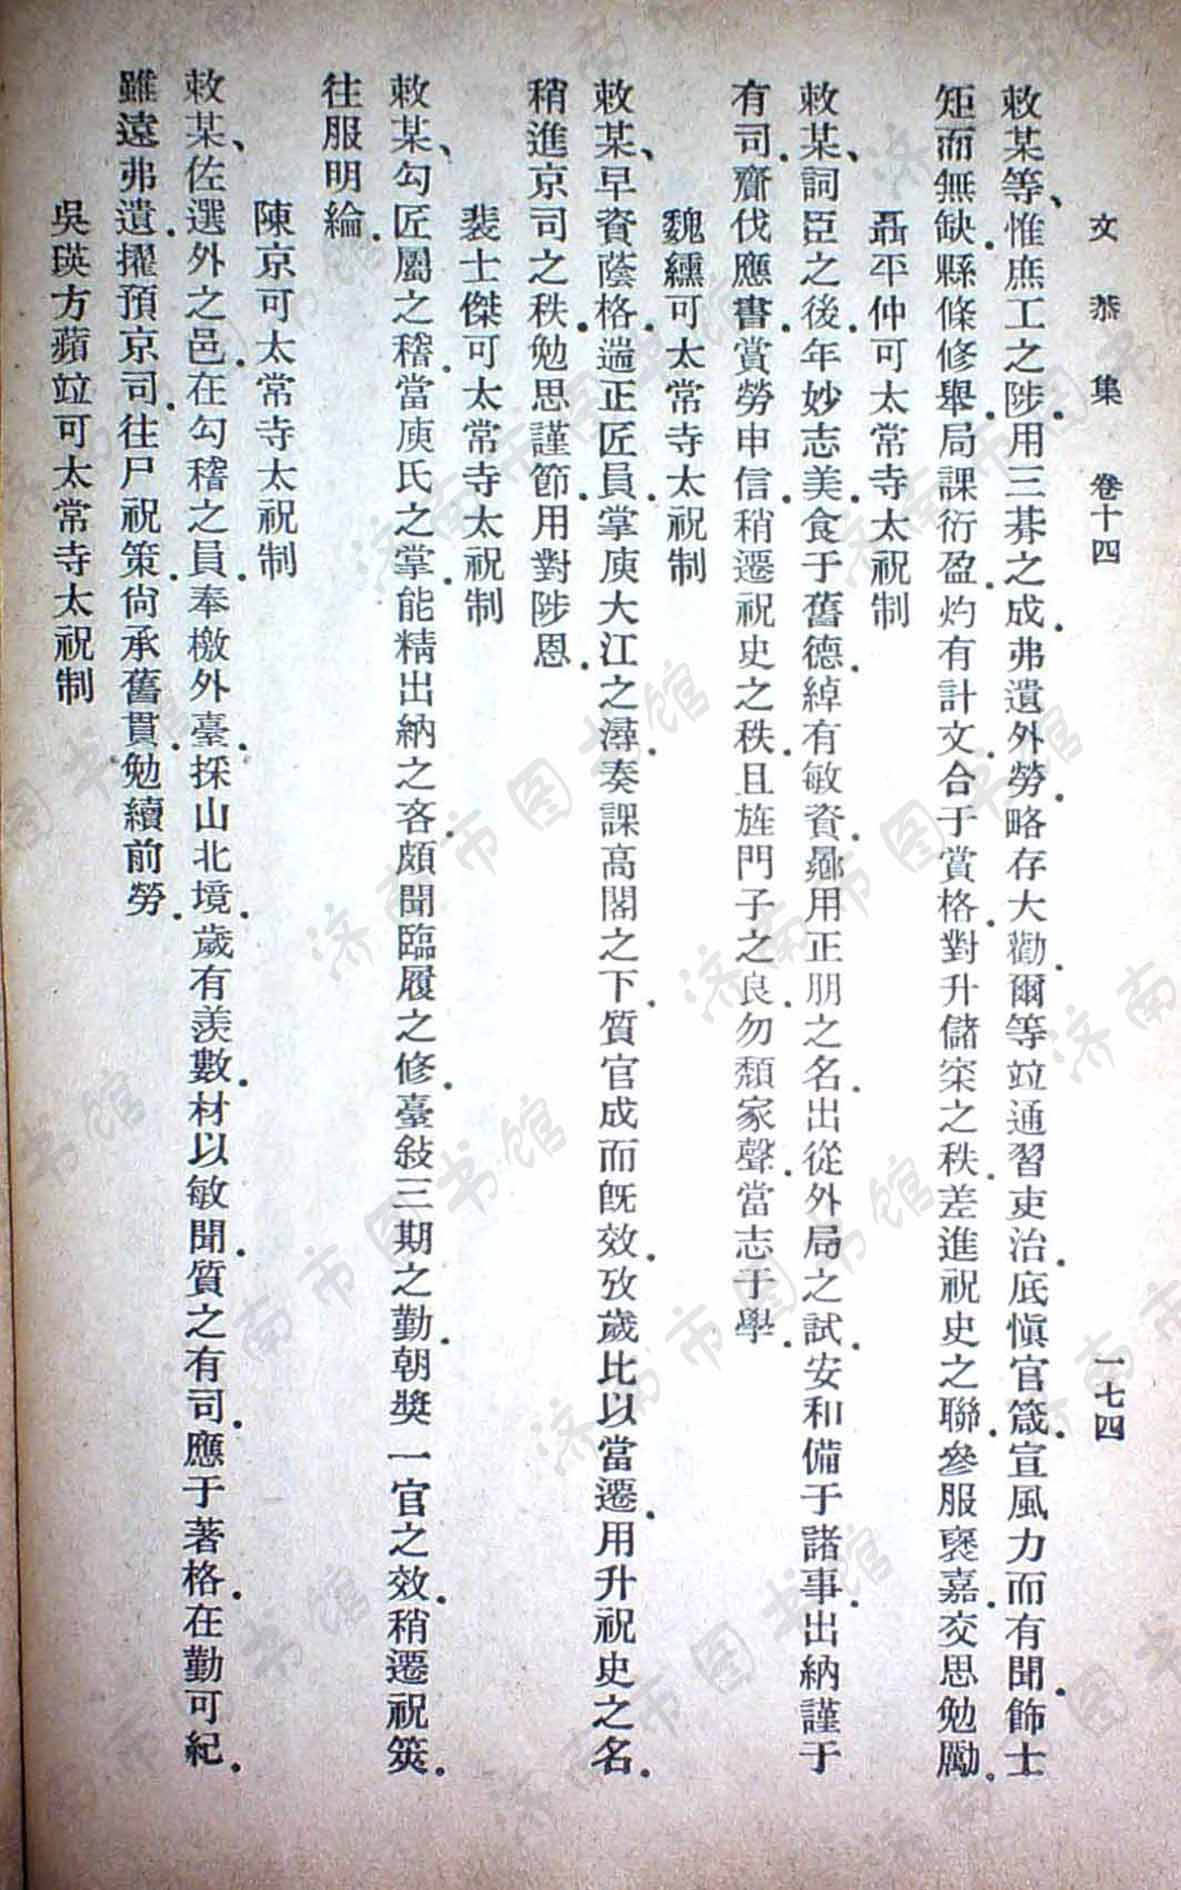 文恭集 卷十四 一七四
敕某等、惟庶工之陟．用三朞之成．弗遺外勞．略存大勸．爾等竝通習吏治．底愼官箴．宣風力而有聞．飾士
矩而無缺．縣條修舉．局課衍盈．灼有計文．合于賞格．對升儲寀之秩．差進祝史之聯．參服襃嘉．交思勉勵．
聶平仲可太常寺太祝制
敕某、詞臣之後．年妙志美．食于舊德．綽有敏資．曏用正朋之名．出從外局之試．安和備于諸事．出納謹于
有司．齎伐應書．賞勞申信．稍遷祝史之秩．且旌門子之良．勿頹家聲．當志于學．
魏纁可太常寺太祝制
敕某、早資蔭格．遄正匠員．掌庾大江之潯．奏課高閣之下．質官成而旣效．攷歲比以當遷．用升祝史之名．
稍進京司之秩．勉思謹節．用對陟恩．
裴士傑可太常寺太祝制
敕某、勾匠屬之稽．當庾氏之掌．能精出納之吝．頗聞臨履之修．臺敍三期之勤．朝獎一官之效．稍遷祝筴．
往服明綸．
陳京可太常寺太祝制
敕某、佐選外之邑．在勾稽之員．奉檄外臺．採山北境．歲有羨數．材以敏聞．質之有司．應于著格．在勤可紀．
雖遠弗遺．擢預京司．往尸祝策．尙承舊貫．勉續前勞．
吳瑛方蘋竝可太常寺太祝制